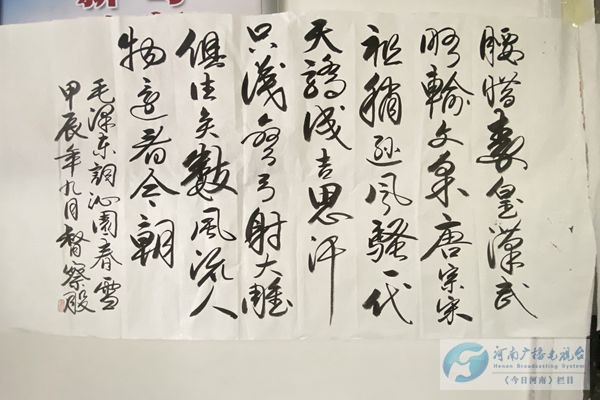 腰惜秦皇漢武
略輸文采唐宗宋
祖稍逊风骚一代
天驕成吉思汗
只識彎弓射大雕
俱往矣數風流人
物還看今朝
毛澤東詞沁園春雪
甲辰年九月督察股
河南广播电视台
Henan Broadcasting System
《今日河南》栏目